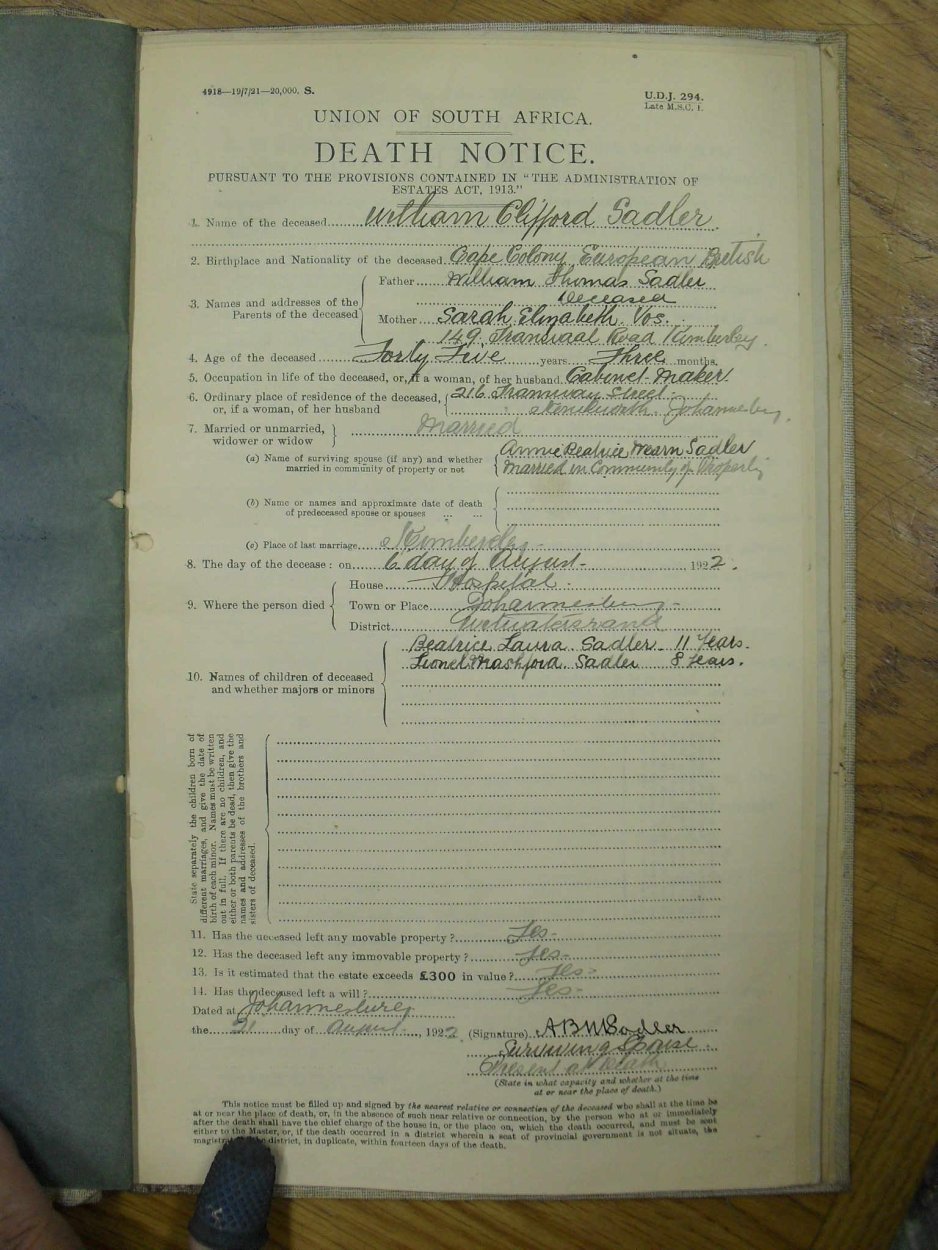 4918—19/7/21—20,000. S.
U.D.J. 294.
Late M.S.C. 1.
UNION OF SOUTH AFRICA.
DEATH NOTICE.
PURSUANT TO THE PROVISIONS CONTAINED IN "THE ADMINISTRATION OF
ESTATES ACT, 1913."
1. Name of the deceased William Clifford Sadler
2. Birthplace and Nationality of the deceased Cape Colony European British
3. Names and addresses of the Parents of the deceased
Father William Thomas Sadler
Deceased
Mother Sarah Elizabeth Vos.
149 Transvaal Road Kimberley.
4. Age of the deceased Forty Five years Three months.
5. Occupation in life of the deceased, or, if a woman, of her husband Cabinet-Maker
6. Ordinary place of residence of the deceased, 216 Tramway Street
or, if a woman, of her husband Kenilworth Johannesburg.
7. Married or unmarried, widower or widow Married
(a) Name of surviving spouse (if any) and whether Annie Beatrice Mearn Sadler
married in community of property or not Married in Community of Property
(b) Name or names and approximate date of death
of predeceased spouse or spouses ... ...
(c) Place of last marriage Kimberley -
8. The day of the decease : on 6 day of August - 1922.
9. Where the person died
House Hospital -
Town or Place Johannesburg -
District Witwatersrand
10. Names of children of deceased
and whether majors or minors
Beatrice Laura Sadler 11 Years.
Lionel Mashford Sadler 8 Years.
State separately the children born of
different marriages, and give the date of
birth of each minor. Names must be written
out in full. If there are no children, and
either or both parents be dead, then give the
names and addresses of the brothers and
sisters of deceased.
11. Has the deceased left any movable property ? Yes-
12. Has the deceased left any immovable property ? Yes-
13. Is it estimated that the estate exceeds £300 in value ? Yes-
14. Has the deceased left a will ? Yes-
Dated at Johannesburg
the 21 day of August, 1922 (Signature) A B M Sadler
Surviving Spouse
Present at death
(State in what capacity and whether at the time
at or near the place of death.)
This notice must be filled up and signed by the nearest relative or connection of the deceased who shall at the time be
at or near the place of death, or, in the absence of such near relative or connection, by the person who at or immediately
after the death shall have the chief charge of the house in, or the place on, which the death occurred, and must be sent
either to the Master, or, if the death occurred in a district wherein a seat of provincial government is not situate, the
district, in duplicate, within fourteen days of the death.